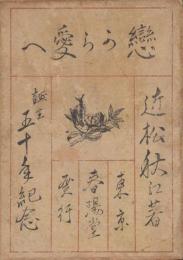 戀から愛へ
近松秋江著
東京
春陽堂
發行
誕生
五十年紀念